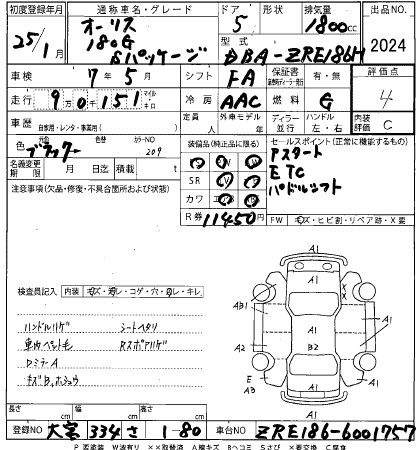 初度登録年月 通称車名・グレード ドア 形状 排気量 出品NO.
25/1 オーリス 5 1800cc 2024
180G
Sパッケージ 型式 DBA-ZRE186H
車検 7年5月 シフト FA 保証書 有・無 評価点
走行 9万0千151 マイル キロ 冷房 AAC 燃料 G 4
車歴 自家用・レンタ・事業用( ) 定員 人 外車モデル ディーラー 並行 ハンドル 左・右 内装評価 C
色 ブラック 色替 カラーNO 209 装備品(純正品に限る) セールスポイント(正常に機能するもの)
名義変更期限 月 日迄 積載 t Pスタート
注意事項(欠品・修復・不具合箇所および状態) SR ETC
カワ パドルシフト
R券 11450 FW キズ・ヒビ割・リペア跡・X要
検査員記入 内装 キズ・汚レ・コゲ・穴・切レ・キレ
ハンドルハゲ シートヘタリ
車内ペット毛 RスポアリゲA
キズB,ホシュウ
A1
A1
AB1
A1
A2
B2
A1
E
A3
A1
長さ cm 幅 cm 高さ cm
登録NO 大宮 334 さ 1-80 車台NO ZRE186-6001757
P 要塗装 W波有り ××取替済 A線キズ Bヘコミ Sさび ×要交換 C腐食